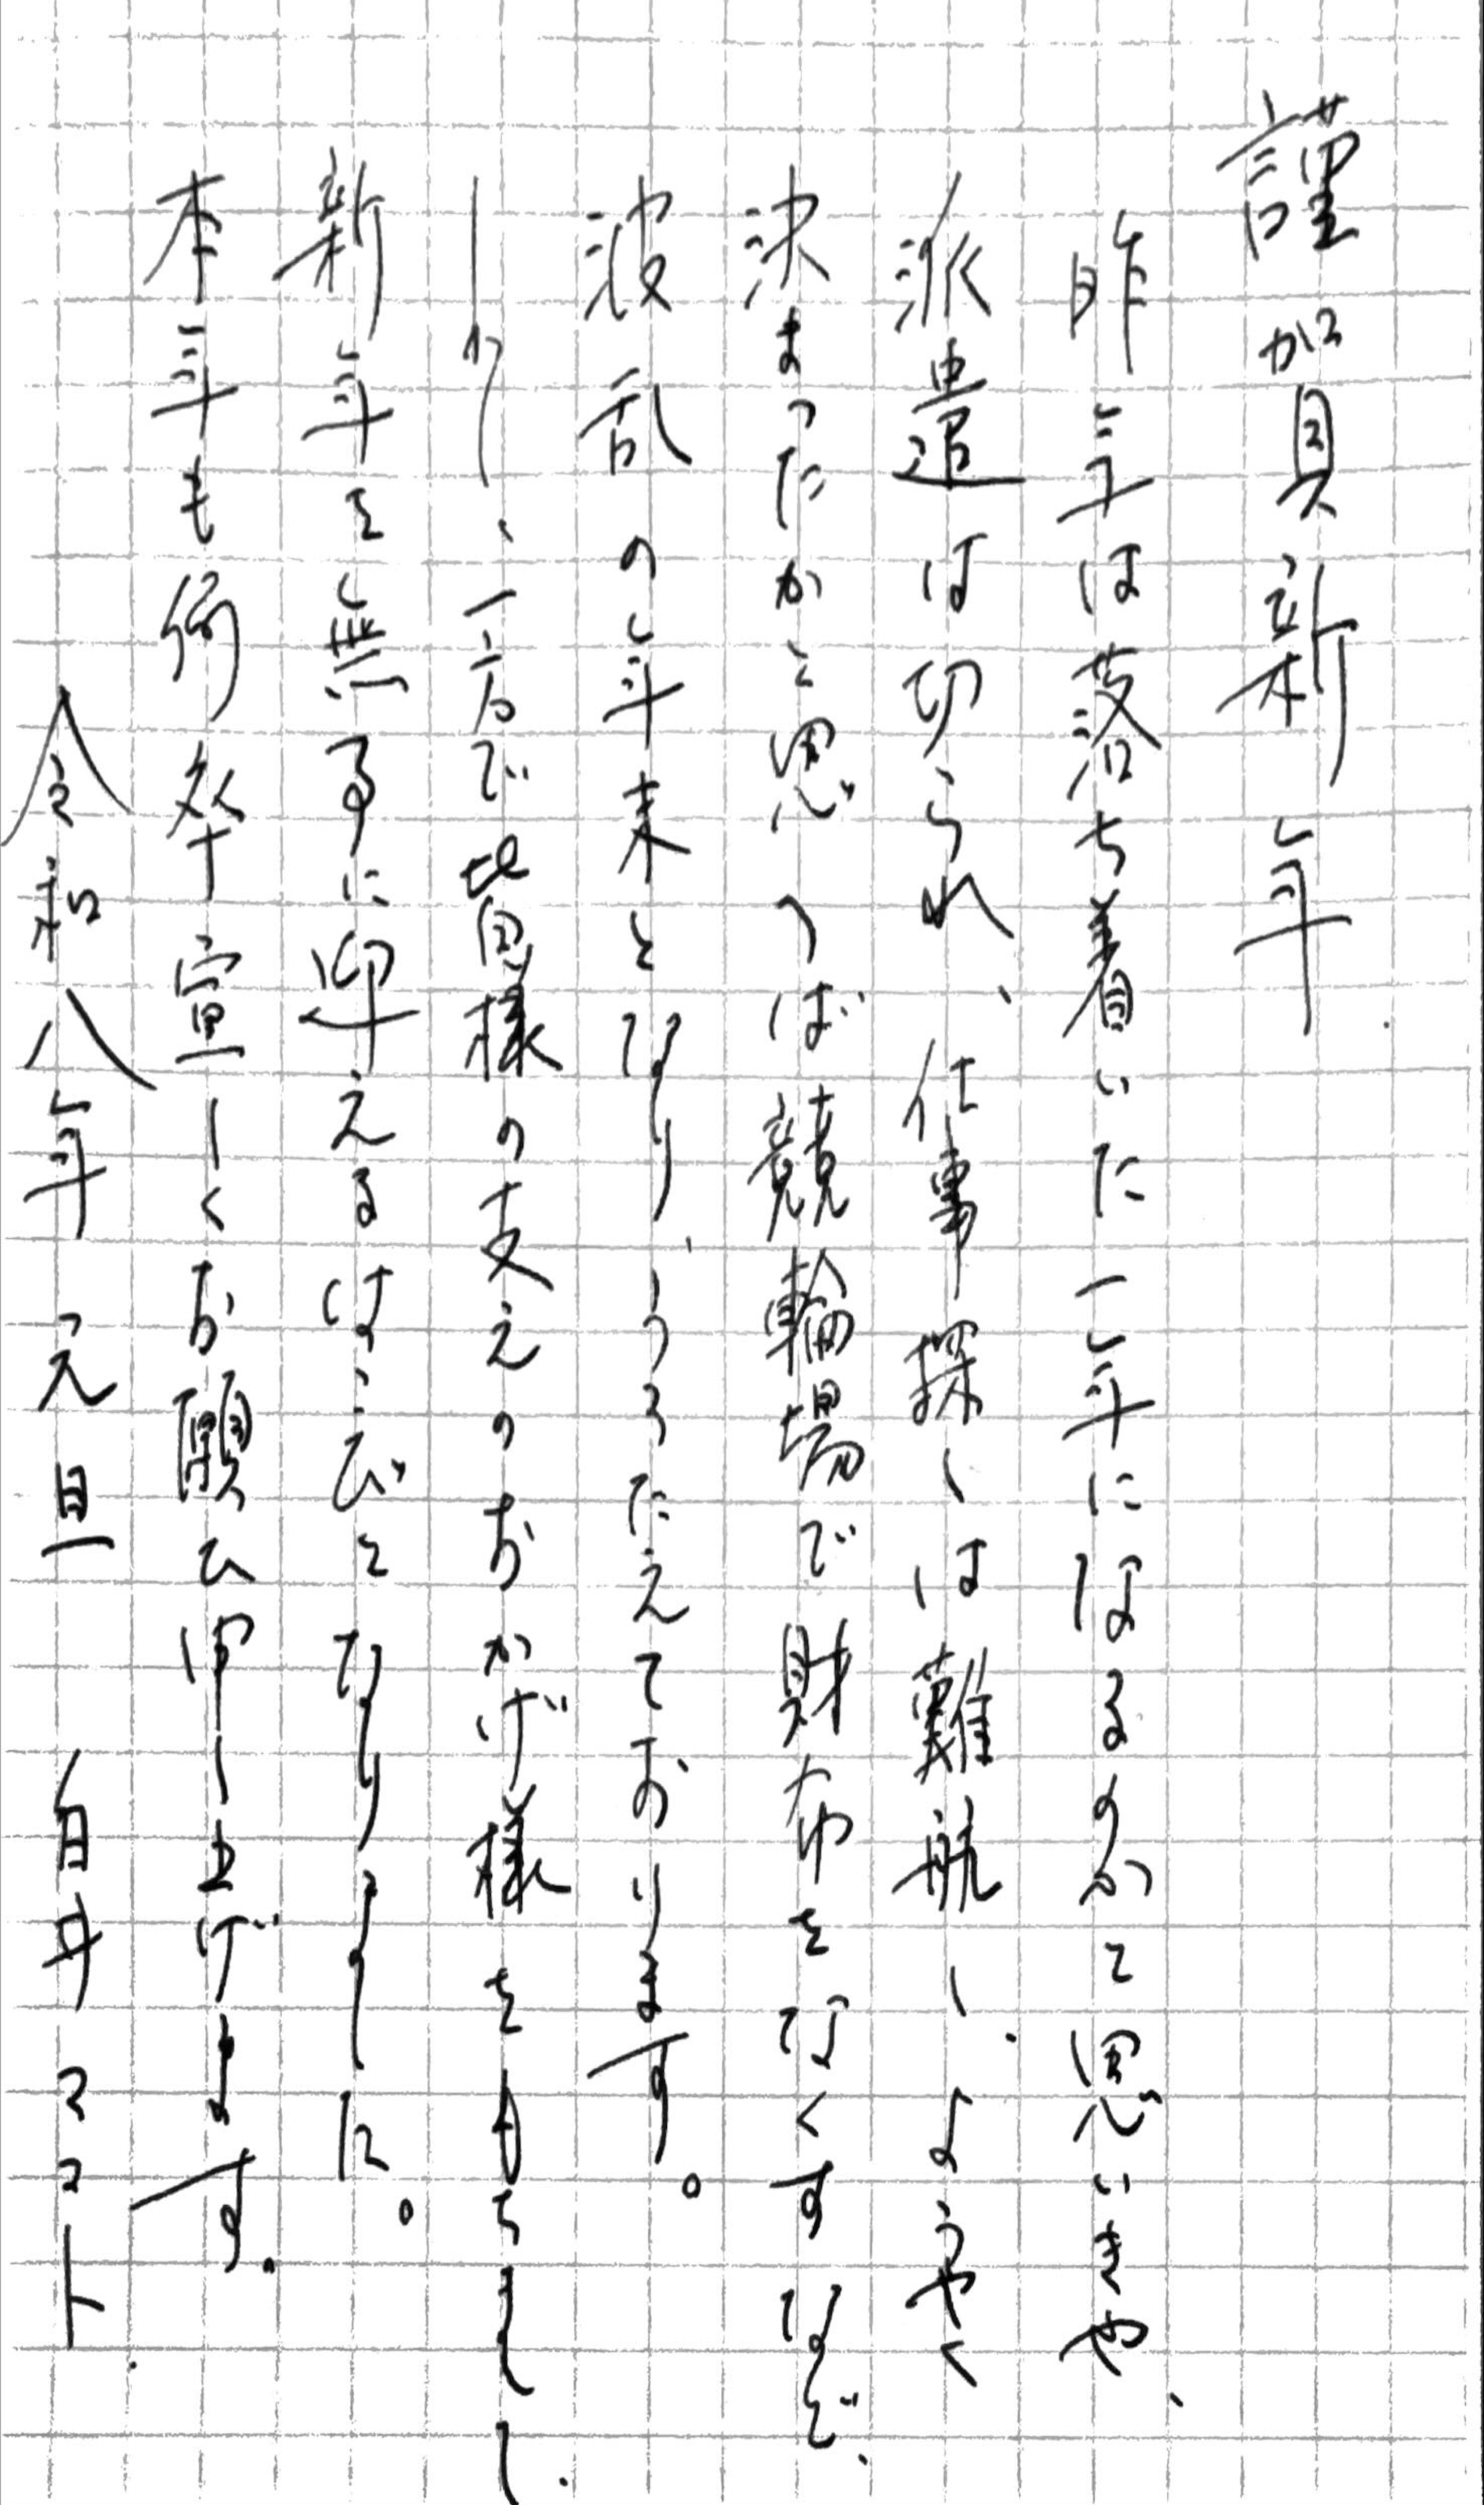 謹賀新年
昨年は落ち着いた一年になるのかと思いきや、
派遣は切られ、仕事探しは難航し、ようやく
決まったかと思へば競輪場で財布をなくすなど、
波乱の年末となり、うろたえております。
しかし、一方で皆様の支えのおかげ様をもちまして、
新年を無事に迎えるはこびとなりました。
本年も何卒宜しくお願ひ申し上げます。
令和八年 元旦 白井マコト